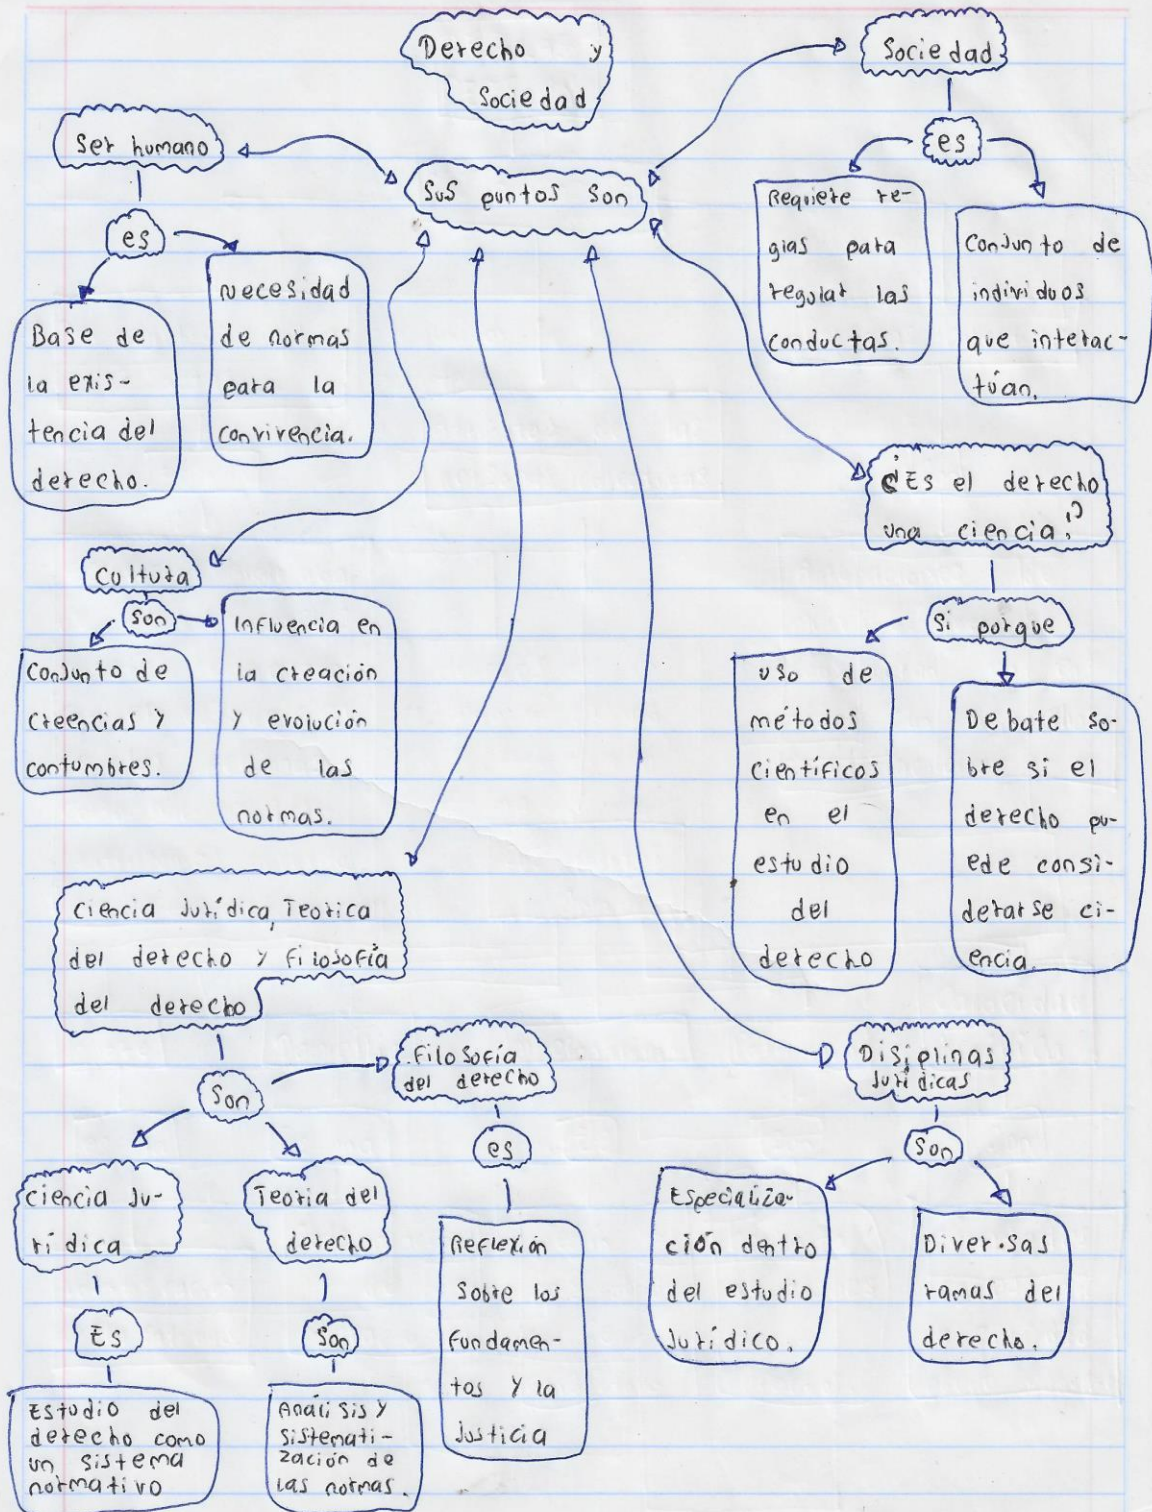 Derecho y
Sociedad
Sociedad
es
Requiere re-
glas para
regular las
conductas.
Conjunto de
individuos
que interac-
túan.
Ser humano
es
Base de
la exis-
tencia del
derecho.
Necesidad
de normas
para la
convivencia.
Sus puntos son
¿Es el derecho
una ciencia?
Si porque
uso de
métodos
científicos
en el
estudio
del
derecho
Debate so-
bre si el
derecho pu-
ede consi-
derarse ci-
encia.
Cultura
Son
Conjunto de
creencias y
contumbres.
Influencia en
la creación
y evolución
de las
normas.
Ciencia Jurídica, Teorica
del derecho y filosofía
del derecho
Son
Filosofía
del derecho
es
Reflexión
sobre los
fundamen-
tos y la
Justicia
Ciencia Ju-
rídica
Es
Estudio del
derecho como
un sistema
normativo
Teoria del
derecho
Son
Análisis y
sistemati-
zación de
las normas.
Disiplinas
Jurídicas
Son
Especializa-
ción dentro
del estudio
Jurídico.
Diversas
ramas del
derecho.